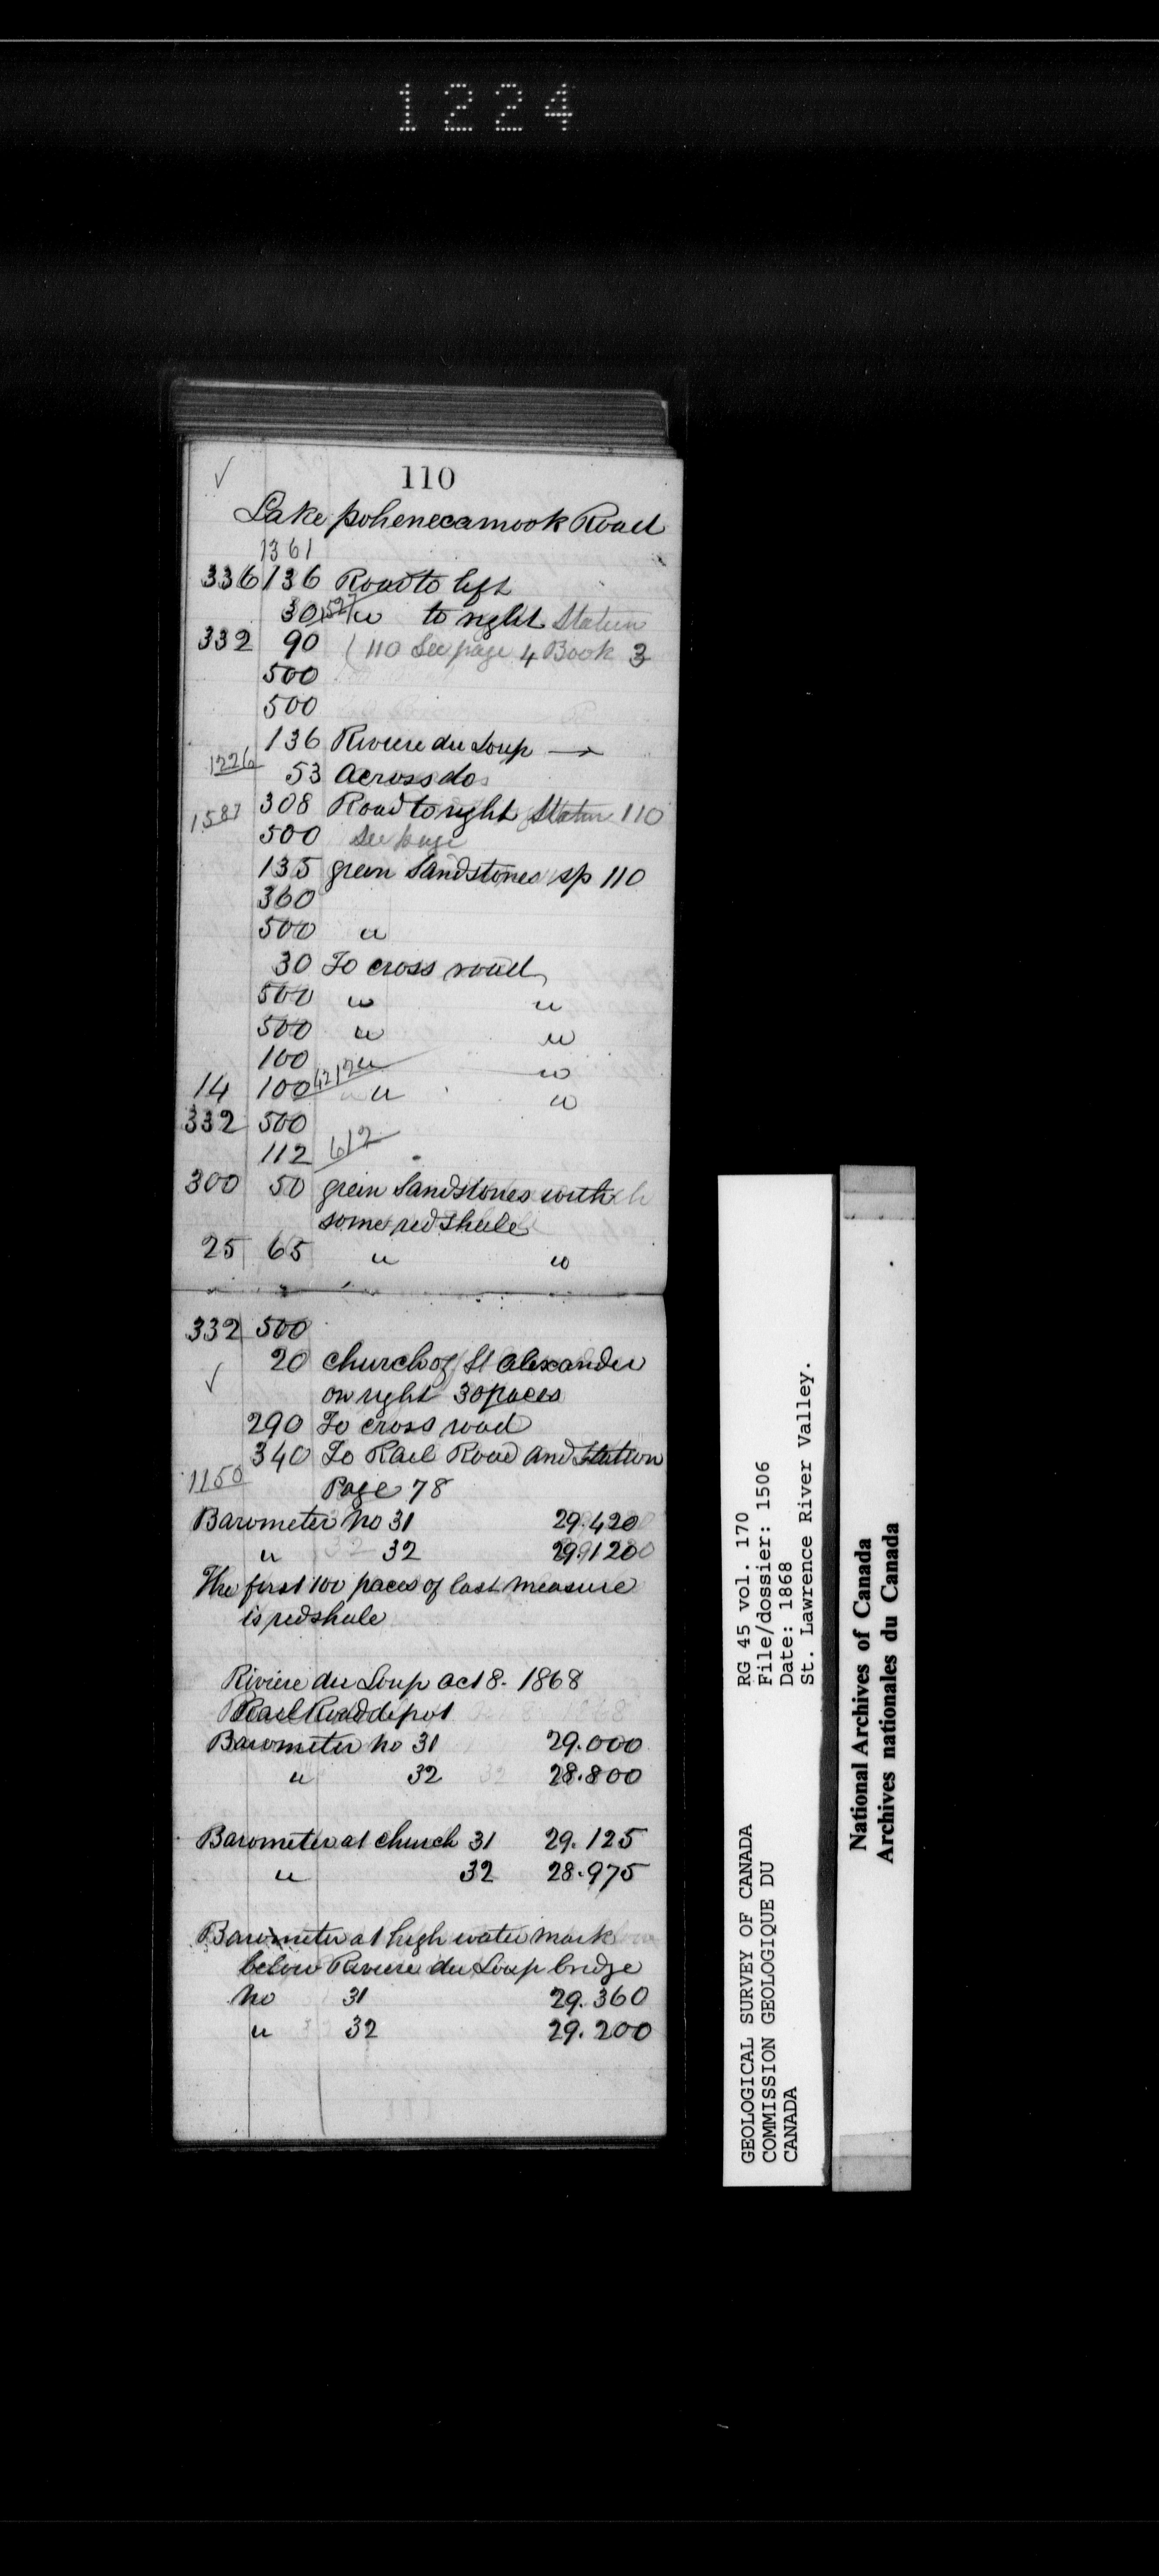 1224
110
Lake pohenecamook Road
1361
336 136 Road to left
30 1527 " to right Station
332 90 (110 See page 4 Book 3
500
500
136 Riviere du Loup →
1226
53 Across do
308 Road to right Station 110
1587
500 See page
135 green Sandstones sp 110
360
500 "
30 To cross road
500 " "
500 " "
100 4212 " "
14 100 " "
332 500
112 612
300 50 green Sandstones with
some red shale
25 65 " "
332 500
20 church of St alexander
on right 30 paces
290 To cross road
340 To Rail Road and Station
1150
Page 78
Barometer No 31 29.420
" 32 29.120
The first 100 paces of last measure
is red shale
Riviere du Loup oct 8. 1868
Rail Road depot
Barometer No 31 29.000
" 32 28.800
Barometer at church 31 29.125
" 32 28.975
Barometer at high water mark
below Riviere du Loup bridge
No 31 29.360
" 32 29.200
RG 45 vol. 170
File/dossier: 1506
Date: 1868
St. Lawrence River Valley.
GEOLOGICAL SURVEY OF CANADA
COMMISSION GEOLOGIQUE DU
CANADA
National Archives of Canada
Archives nationales du Canada